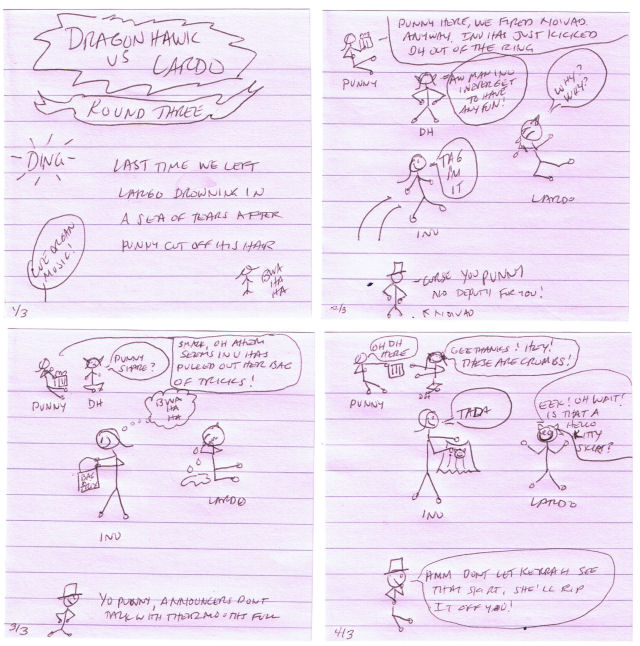 DRAGONHAWK
VS
LARDO
ROUND THREE
DING
LAST TIME WE LEFT
LARGO DROWNING IN
A SEA OF TEARS AFTER
PUNNY CUT OFF HIS HAIR
CUE ORGAN
MUSIC!
BWA
HA
HA
1/3
PUNNY HERE, WE FIRED NOWAD.
ANYWAY, INU HAS JUST KICKED
DH OUT OF THE RING
PUNNY
AW MAN INU
I NEVER GET
TO HAVE
ANY FUN!
DH
WHY?
WHY?
LARDO
TAG
M
IT
INU
CURSE YOU PUNNY
NO DEPUTY FOR YOU!
NOWAD
2/3
SMAK, OH AHEM
SEEMS INU HAS
PULLED OUT HER BAG
OF TRICKS!
PUNNY
SHARE?
PUNNY
DH
BWA
HA
HA
BAG
INU
LARDO
YO PUNNY, ANNOUNCERS DONT
TALK WITH THEIR MOUTHS FULL
3/3
OH DH
HERE
GEE THANKS! HEY!
THESE ARE CRUMBS!
PUNNY
DH
TADA
EEK! OH WAIT!
IS THAT A
HELLO
KITTY
SKIRT?
INU
LARDO
AMM DONT LET KERRAH SEE
THAT SKIRT, SHE'LL RIP
IT OFF YOU!
4/3